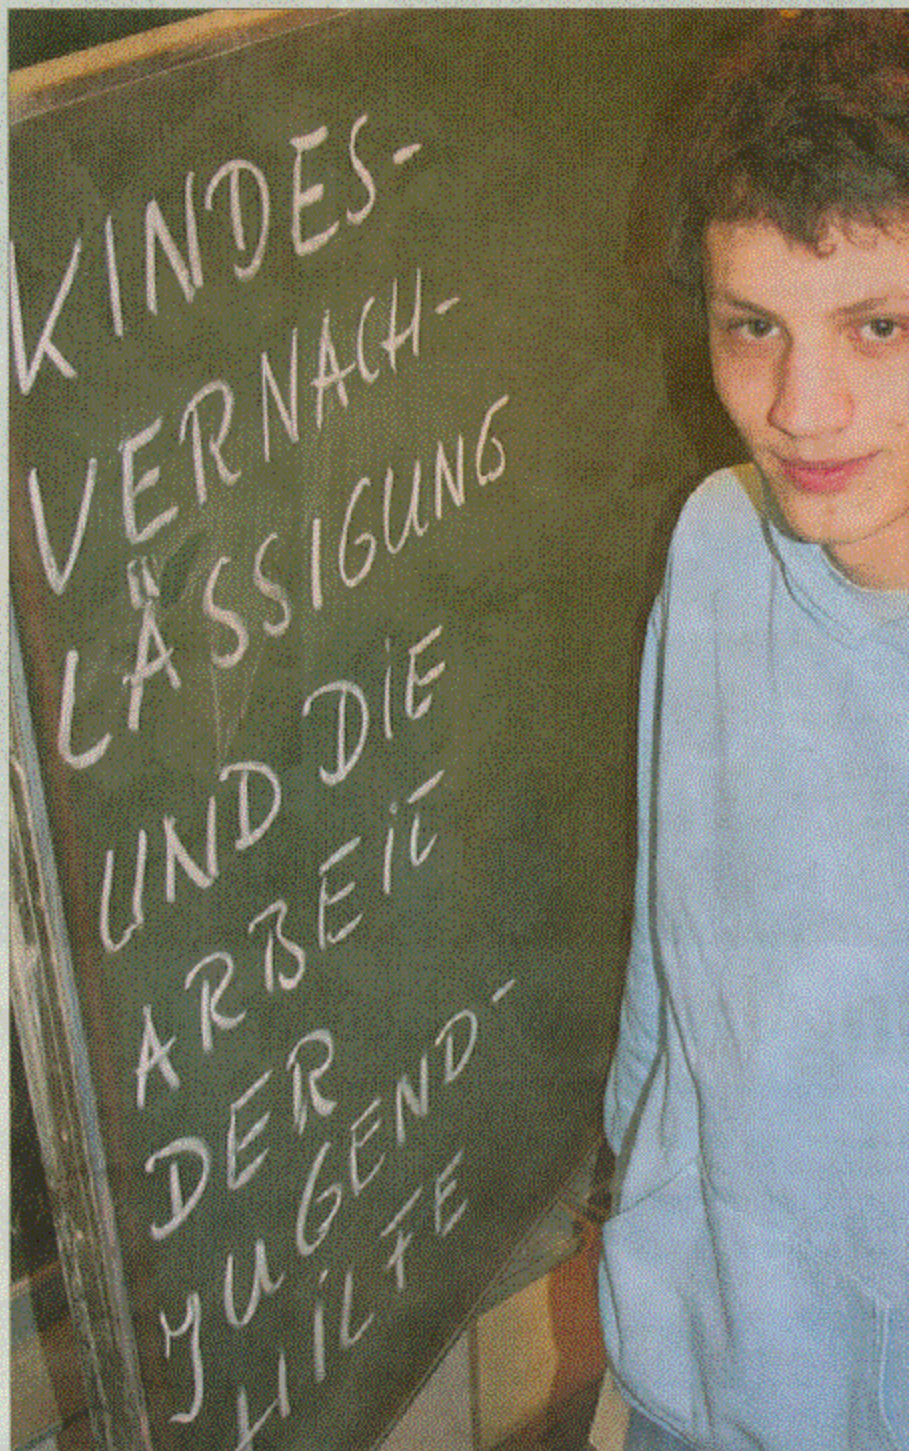 KINDES-
VERNACH-
LÄSSIGUNG
UND DIE
ARBEIT
DER
JUGEND-
HILFE